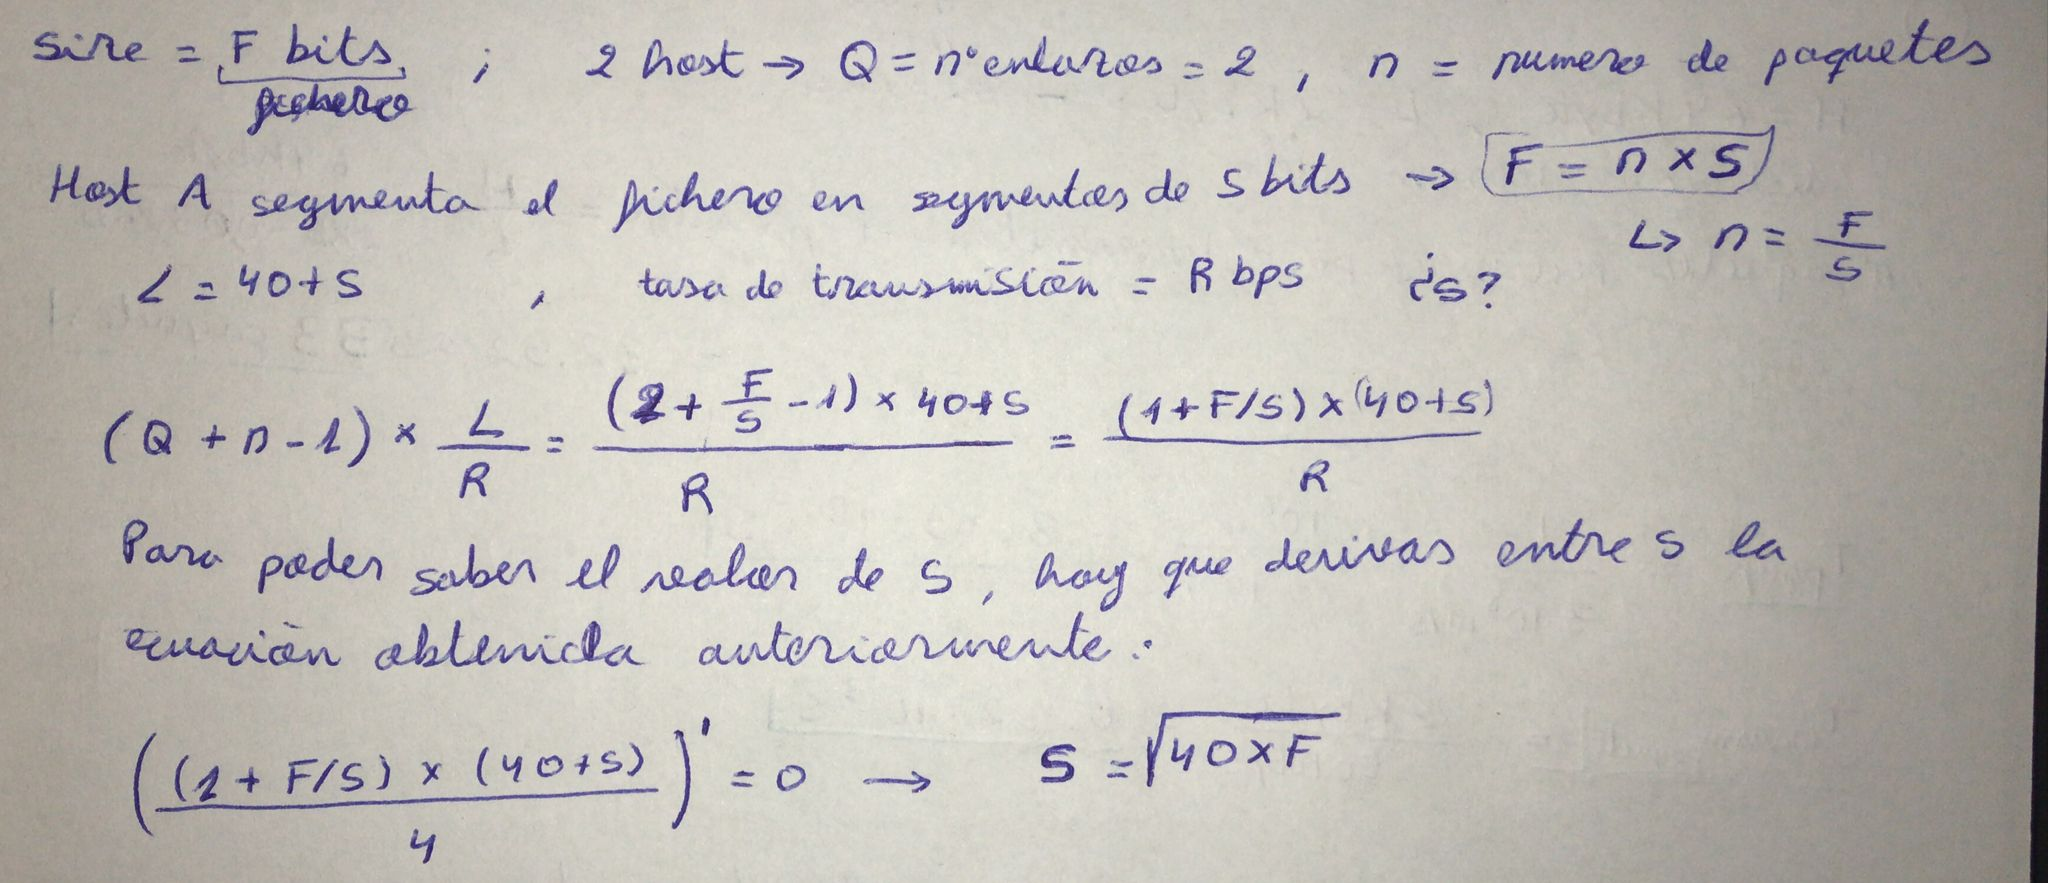 Size = F bits ; 2 host → Q = nº enlazos = 2 , n = numero de paquetes
fichero
Host A segmenta el fichero en segmentos de S bits → F = n × S
↳ n = F/S
L = 40+S , tasa de transmisión = R bps ¿S?
(Q + n - 1) × L/R = (2 + F/S - 1) × 40+S / R = (1 + F/S) × (40+S) / R
Para poder saber el valor de S, hay que derivar entre S la
ecuación obtenida anteriormente:
((1 + F/S) × (40+S) / 4)' = 0 → S = √40×F